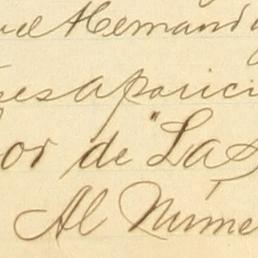 uel Hernand
esaparici
or de "Las
Al Núme